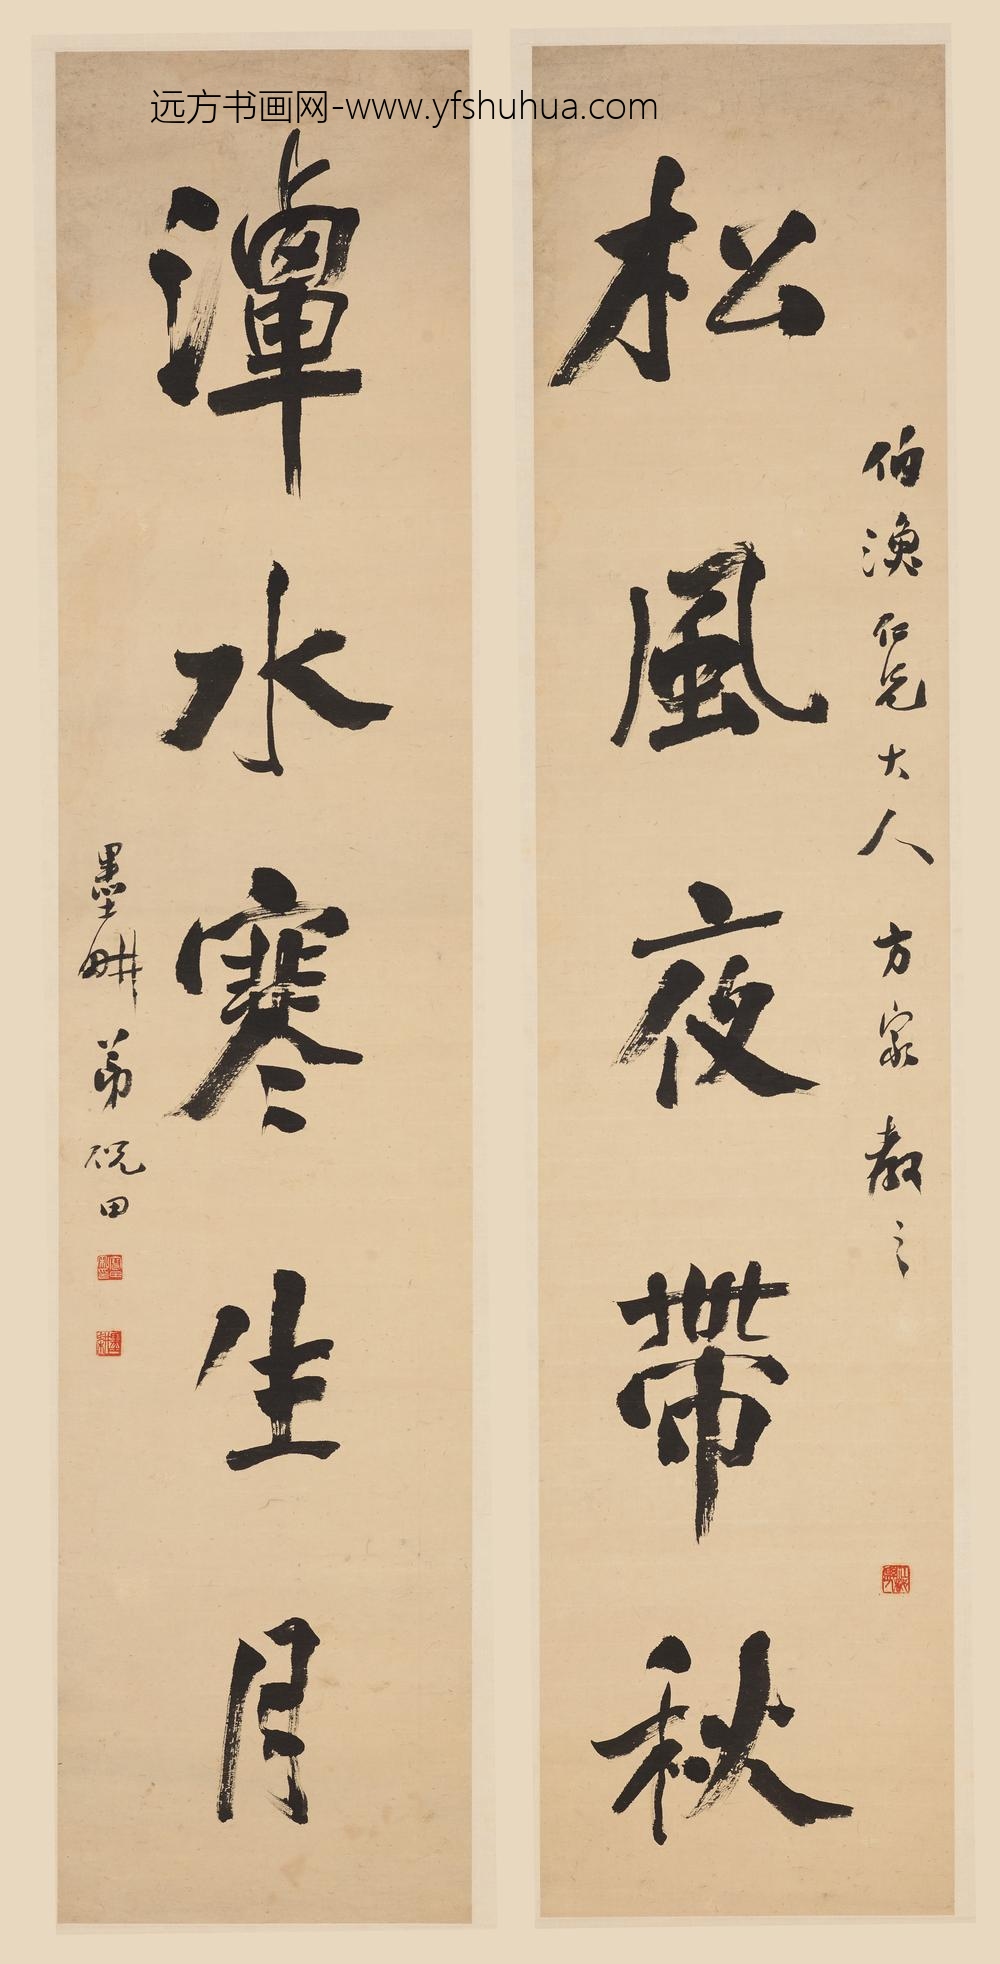 远方书画网-www.yfshuhua.com
伯漁仁兄大人方家教之
松風夜帶秋
潭水寒生月
墨畊弟倪田